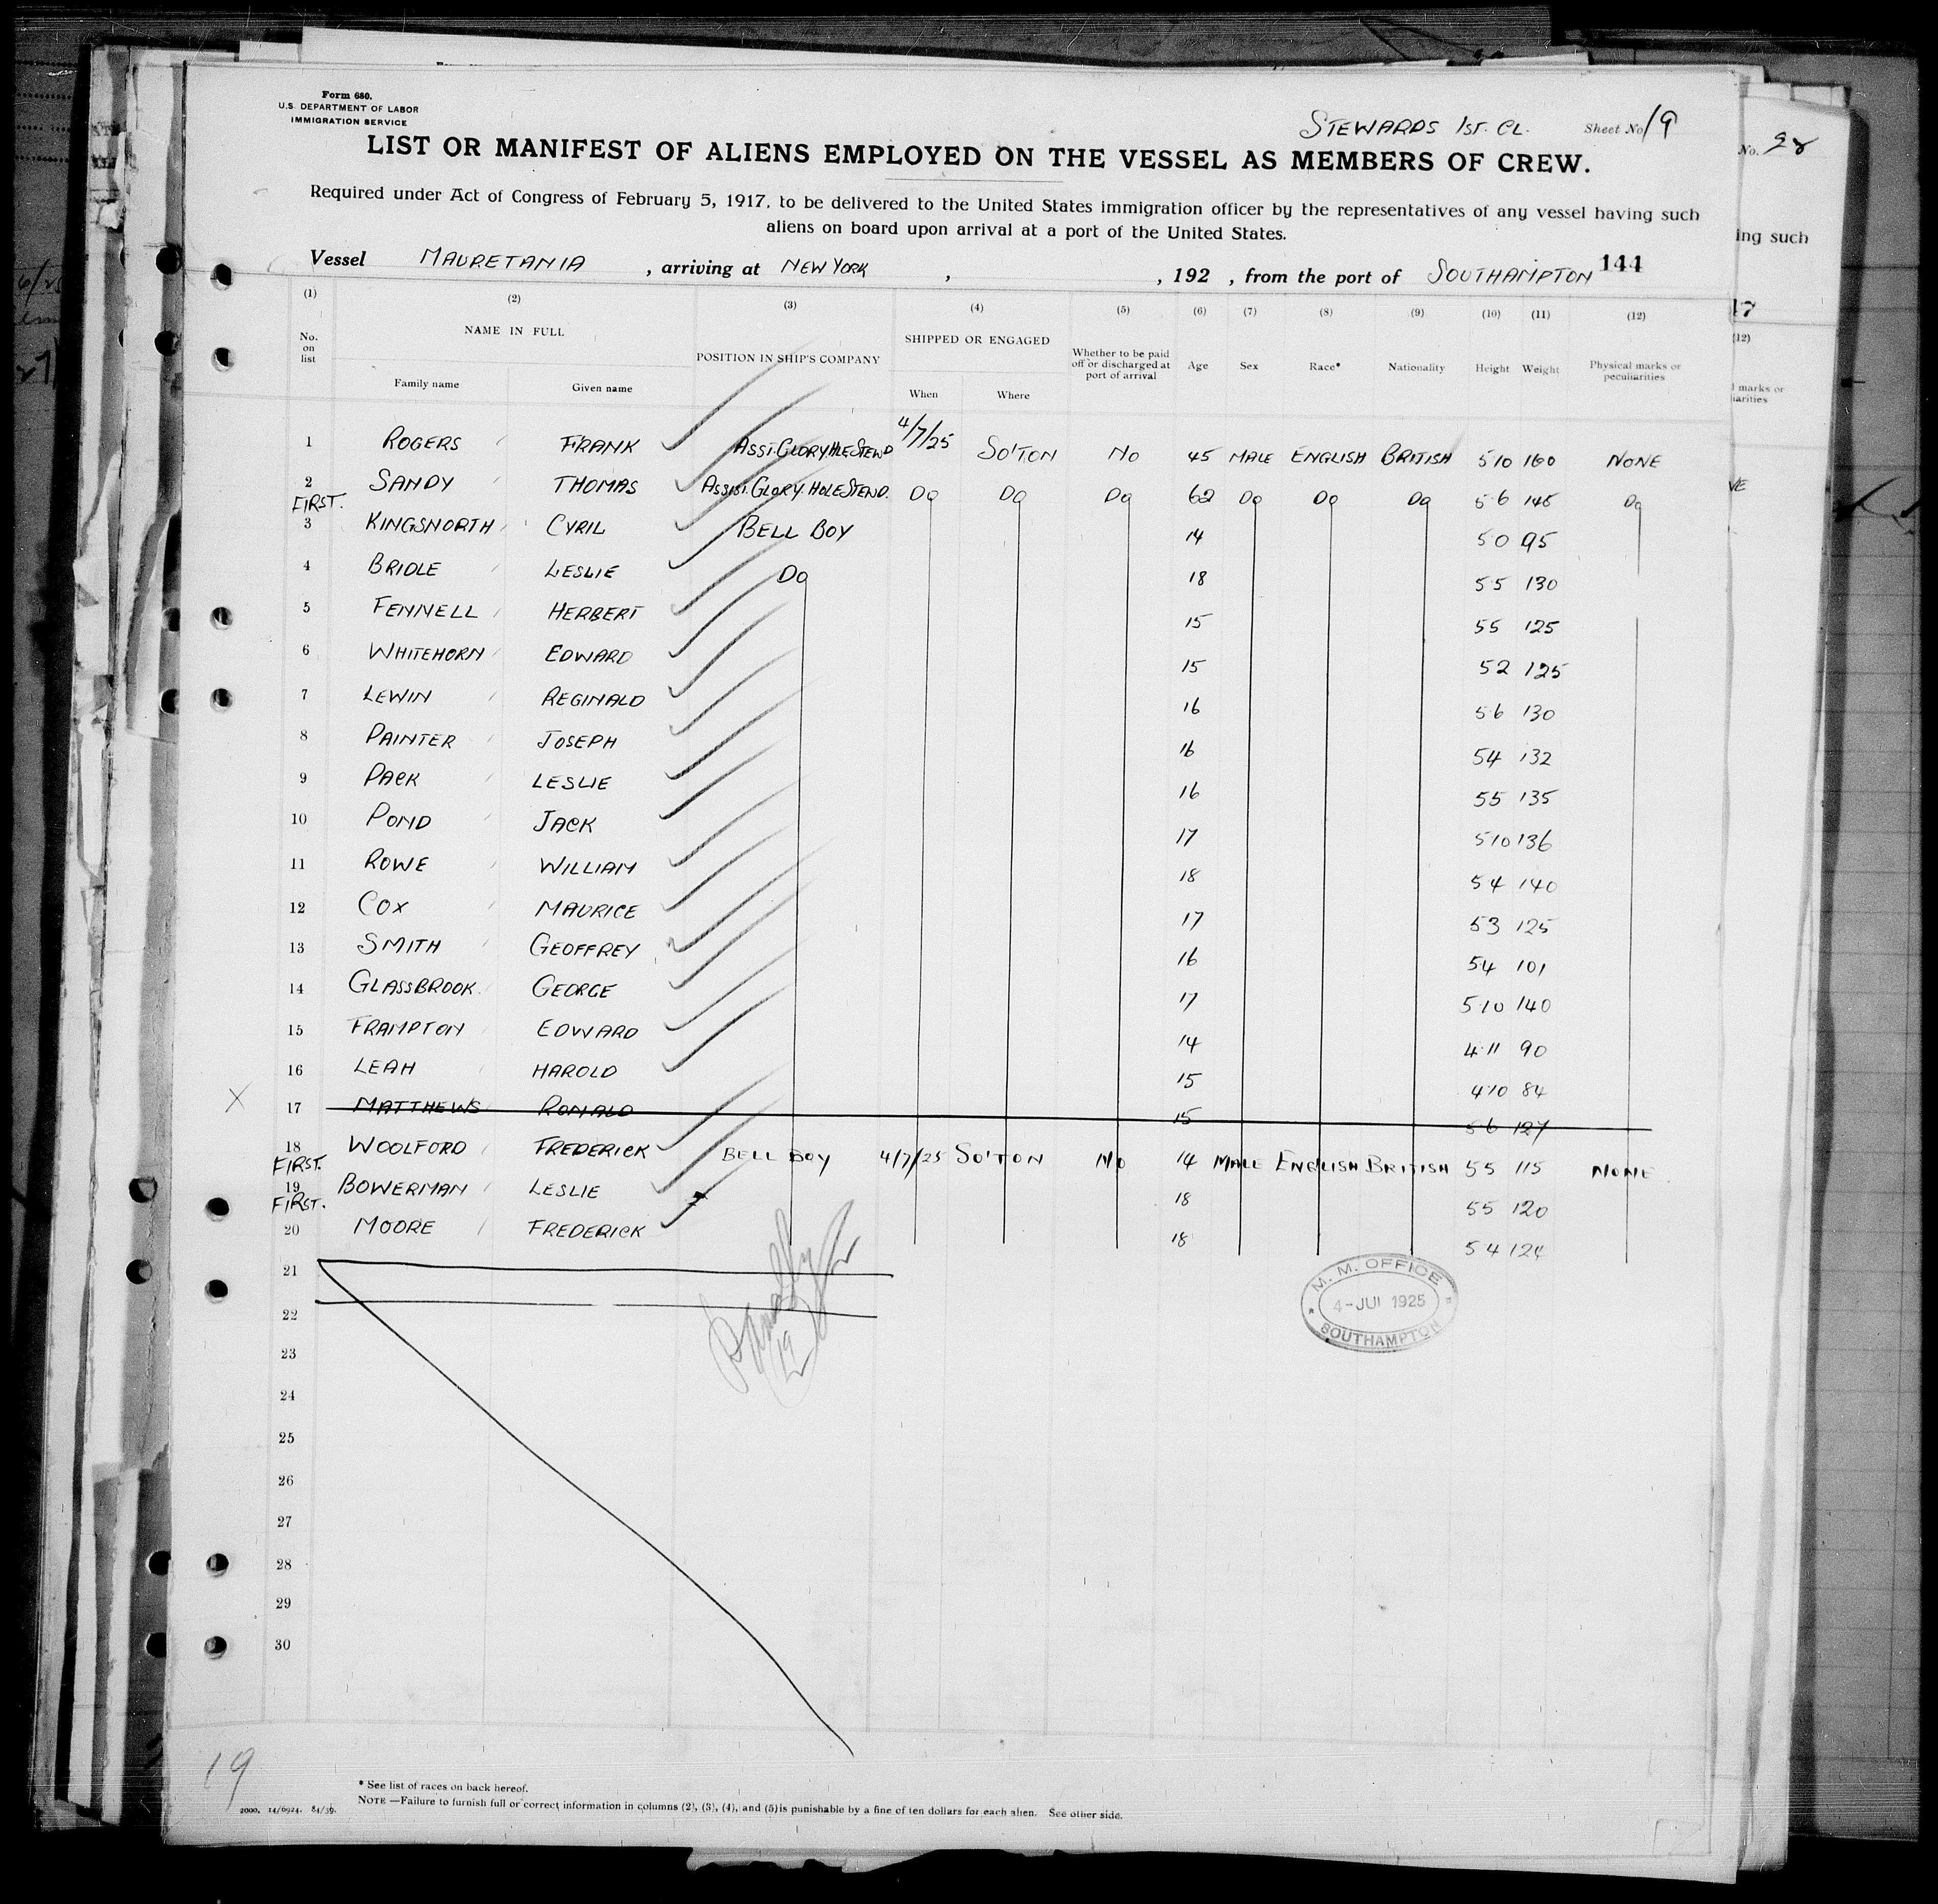 Form 680.
U.S. DEPARTMENT OF LABOR
IMMIGRATION SERVICE
STEWARDS 1ST. CL. Sheet No 19
LIST OR MANIFEST OF ALIENS EMPLOYED ON THE VESSEL AS MEMBERS OF CREW.
No. 28
Required under Act of Congress of February 5, 1917, to be delivered to the United States immigration officer by the representatives of any vessel having such
aliens on board upon arrival at a port of the United States.
ing such
Vessel MAURETANIA , arriving at NEW YORK , , 192 , from the port of SOUTHAMPTON 144
(1) (2) (3) (4) (5) (6) (7) (8) (9) (10) (11) (12)
No. on list NAME IN FULL POSITION IN SHIP'S COMPANY SHIPPED OR ENGAGED Whether to be paid off or discharged at port of arrival Age Sex Race* Nationality Height Weight Physical marks or peculiarities
Family name Given name When Where
1 ROGERS FRANK ASSI. GLORY HLE STEWD 4/7/25 SO'TON NO 45 MALE ENGLISH BRITISH 5 10 160 NONE
2 SANDY THOMAS ASSIST. GLORY. HOLE STEWD. DO DO DO 62 DO DO DO 5 6 145 DO
FIRST.
3 KINGSNORTH CYRIL BELL BOY 14 5 0 95
4 BRIDLE LESLIE DO 18 5 5 130
5 FENNELL HERBERT 15 5 5 125
6 WHITEHORN EDWARD 15 5 2 125
7 LEWIN REGINALD 16 5 6 130
8 PAINTER JOSEPH 16 5 4 132
9 PACK LESLIE 16 5 5 135
10 POND JACK 17 5 10 136
11 ROWE WILLIAM 18 5 4 140
12 COX MAURICE 17 5 3 125
13 SMITH GEOFFREY 16 5 4 101
14 GLASSBROOK GEORGE 17 5 10 140
15 FRAMPTON EDWARD 14 4 11 90
16 LEAH HAROLD 15 4 10 84
X 17 MATTHEWS RONALD 15 5 6 127
18 WOOLFORD FREDERICK BELL BOY 4/7/25 SO'TON NO 14 MALE ENGLISH BRITISH 5 5 115 NONE
FIRST.
19 BOWERMAN LESLIE 18 5 5 120
FIRST.
20 MOORE FREDERICK 18 5 4 124
21
22
23
24
25
26
27
28
29
30
M. M. OFFICE
4-JUL 1925
SOUTHAMPTON
19
19
* See list of races on back hereof.
NOTE —Failure to furnish full or correct information in columns (2), (3), (4), and (5) is punishable by a fine of ten dollars for each alien. See other side.
2000. 14/6924.